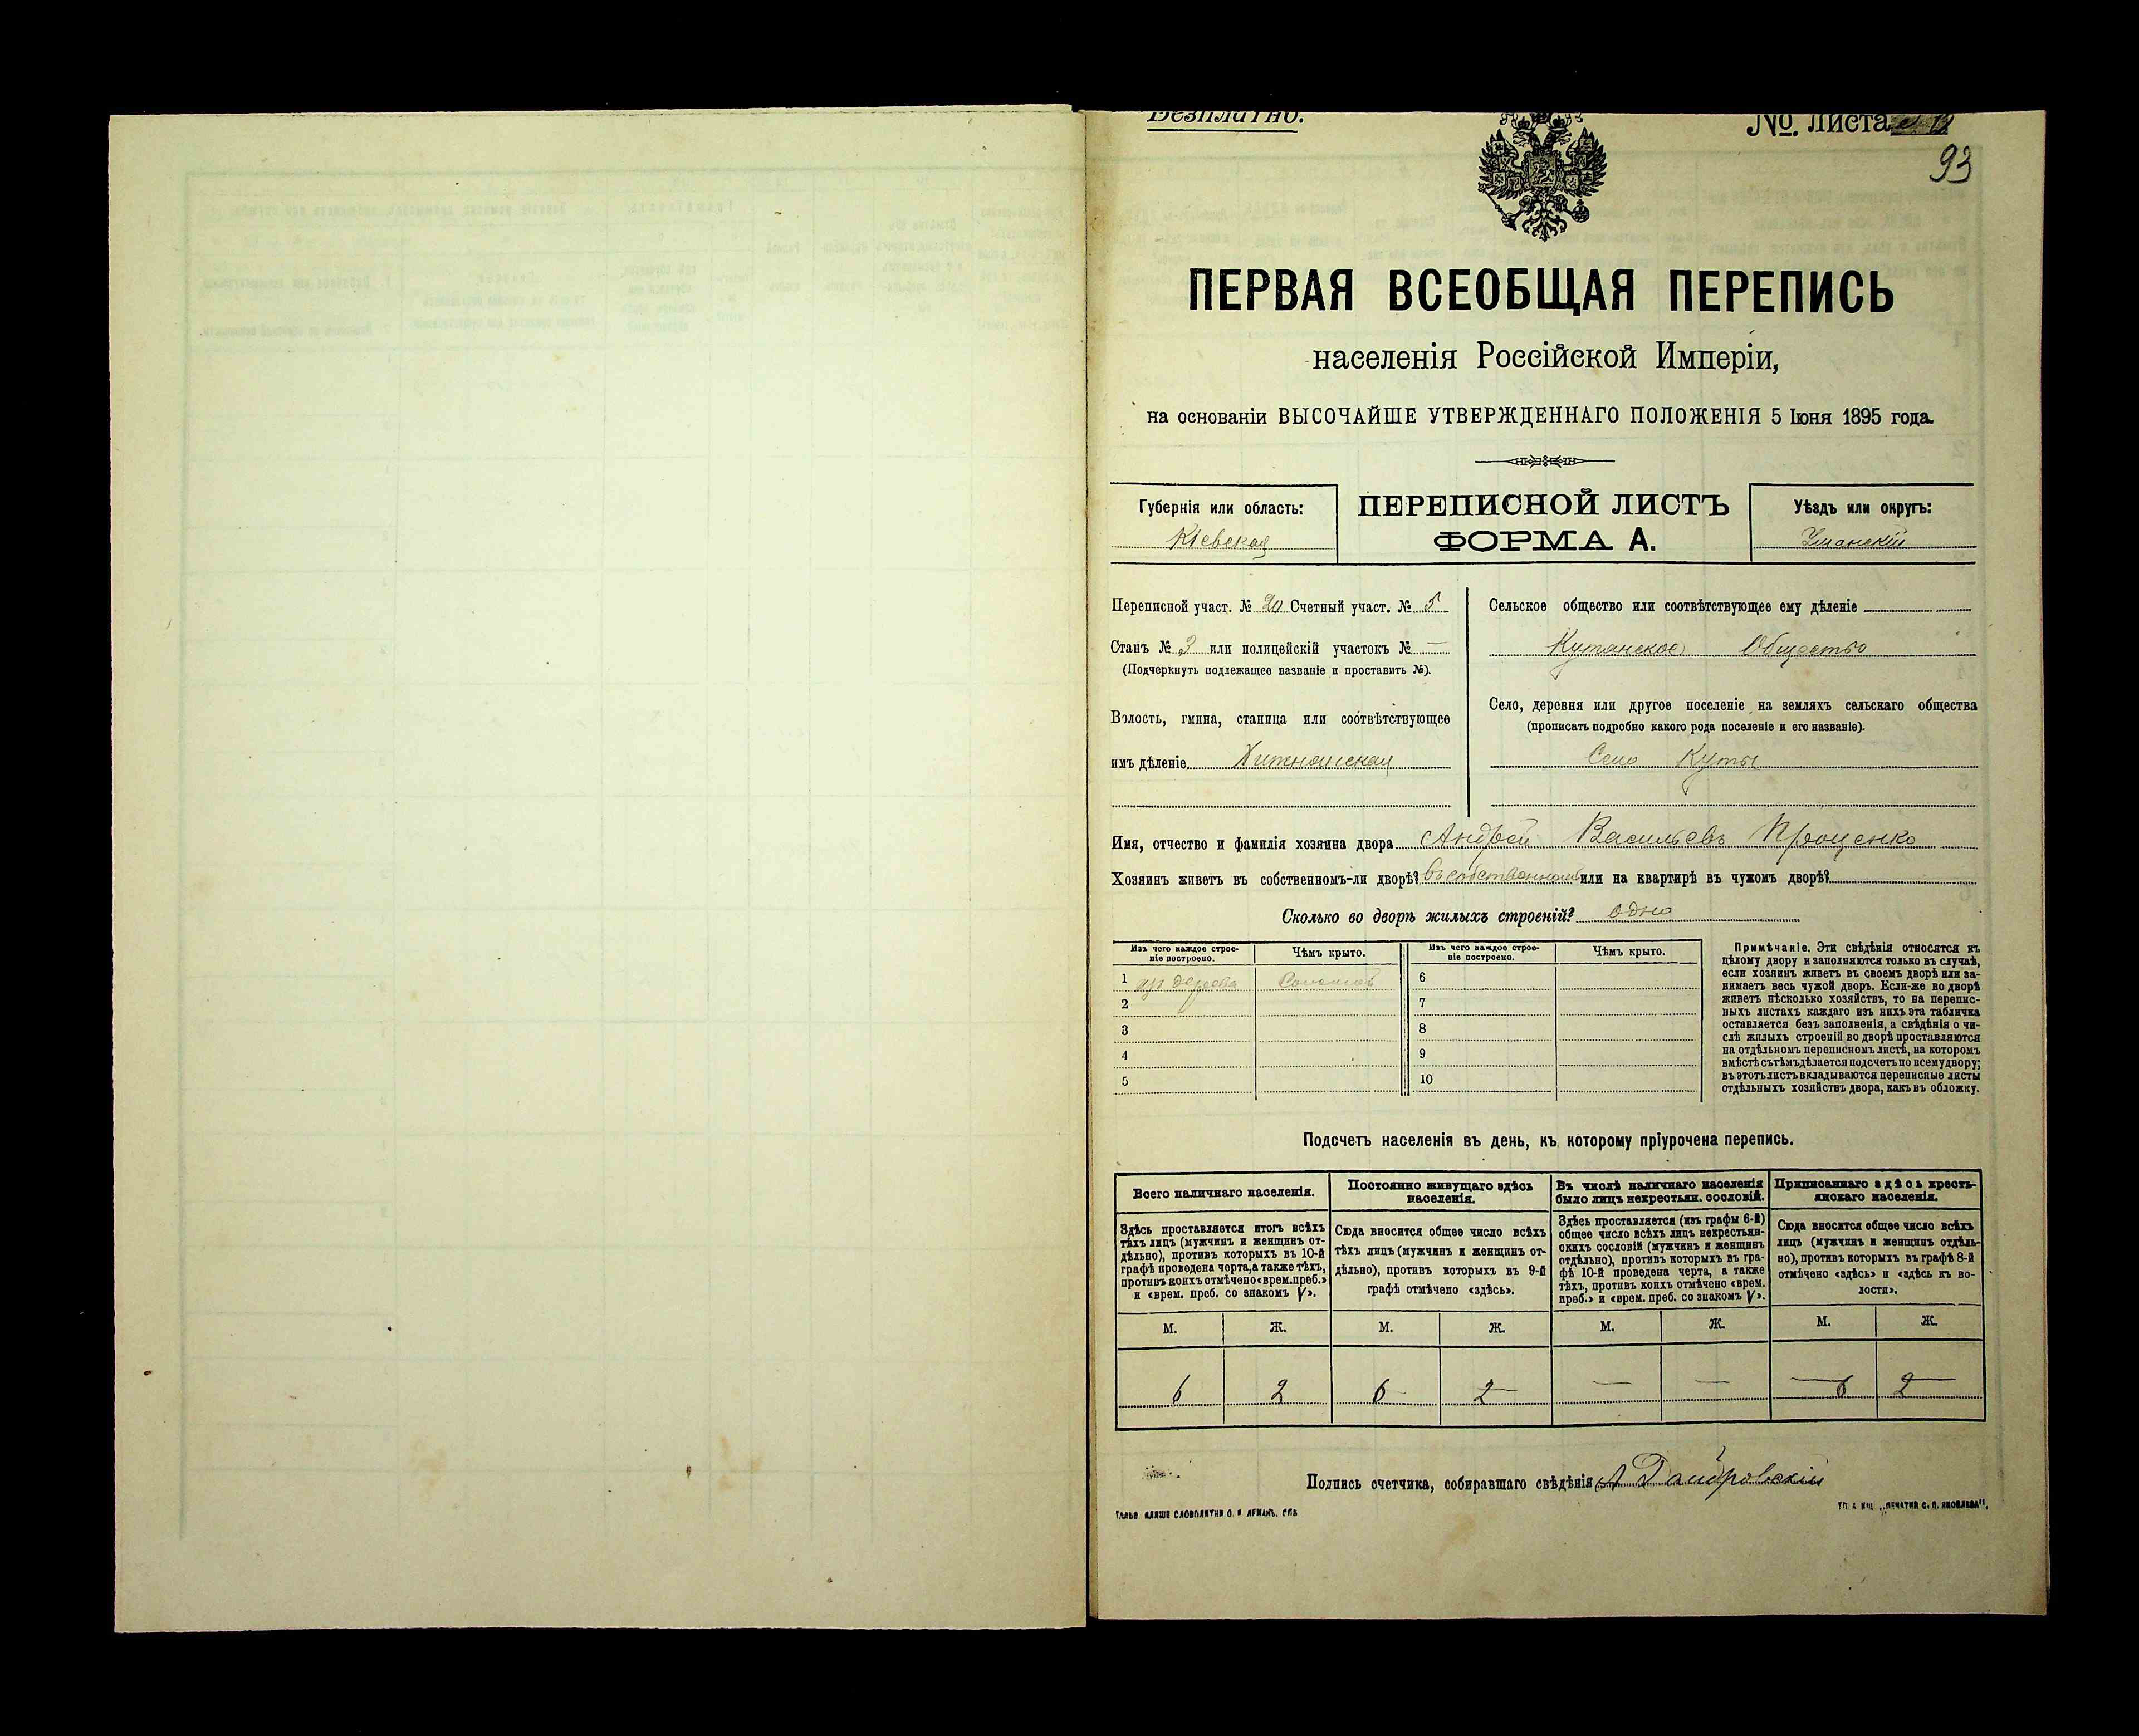 Безплатно.
№. листа
93
ПЕРВАЯ ВСЕОБЩАЯ ПЕРЕПИСЬ
населенія Россійской Имперіи,
на основаніи ВЫСОЧАЙШЕ УТВЕРЖДЕННАГО ПОЛОЖЕНІЯ 5 Іюня 1895 года.
Губернія или область:
Кіевская
ПЕРЕПИСНОЙ ЛИСТЪ
ФОРМА А.
Уѣздъ или округъ:
Уманскій
Переписной участ. № 20 Счетный участ. № 5
Станъ № 3 или полицейскій участокъ № —
(Подчеркнуть подлежащее названіе и проставить №).
Волость, гмина, станица или соотвѣтствующее
имъ дѣленіе
Сельское общество или соотвѣтствующее ему дѣленіе
Кутянское Общество
Село, деревня или другое поселеніе на земляхъ сельскаго общества
(прописать подробно какого рода поселеніе и его названіе).
Село Куты
Имя, отчество и фамилія хозяина двора Андрей Васильевъ Проценко
Хозяинъ живетъ въ собственномъ-ли дворѣ? въ собственномъ или на квартирѣ въ чужомъ дворѣ?
Сколько во дворѣ жилыхъ строеній? одно
Изъ чего каждое строе-
ніе построено.
Чѣмъ крыто.
Изъ чего каждое строе-
ніе построено.
Чѣмъ крыто.
1 изъ дерева Соломой 6
2 7
3 8
4 9
5 10
Примѣчаніе. Эти свѣдѣнія относятся къ
цѣлому двору и заполняются только въ случаѣ,
если хозяинъ живетъ въ своемъ дворѣ или за-
нимаетъ весь чужой дворъ. Если-же во дворѣ
живетъ нѣсколько хозяйствъ, то на перепис-
ныхъ листахъ каждаго изъ нихъ эта табличка
оставляется безъ заполненія, а свѣдѣнія о чи-
слѣ жилыхъ строеній во дворѣ проставляются
на отдѣльномъ переписномъ листѣ, на которомъ
вмѣстѣ съ тѣмъ дѣлается подсчетъ по всему двору;
въ этотъ листъ вкладываются переписные листы
отдѣльныхъ хозяйствъ двора, какъ въ обложку.
Подсчетъ населенія въ день, къ которому пріурочена перепись.
Всего наличнаго населенія.
Здѣсь проставляется итогъ всѣхъ
тѣхъ лицъ (мужчинъ и женщинъ от-
дѣльно), противъ которыхъ въ 10-й
графѣ проведена черта, а также тѣхъ,
противъ коихъ отмѣчено «врем. преб.»
и «врем. преб. со знакомъ V».
Постоянно живущаго здѣсь
населенія.
Сюда вносится общее число всѣхъ
тѣхъ лицъ (мужчинъ и женщинъ от-
дѣльно), противъ которыхъ въ 9-й
графѣ отмѣчено «здѣсь».
Въ числѣ наличнаго населенія
было лицъ некрестьян. сословій.
Здѣсь проставляется (изъ графы 6-й)
общее число всѣхъ лицъ некрестьян-
скихъ сословій (мужчинъ и женщинъ
отдѣльно), противъ которыхъ въ гра-
фѣ 10-й проведена черта, а также
тѣхъ, противъ коихъ отмѣчено «врем.
преб.» и «врем. преб. со знакомъ V».
Приписаннаго здѣсь кресть-
янскаго населенія.
Сюда вносится общее число всѣхъ
лицъ (мужчинъ и женщинъ отдѣль-
но), противъ которыхъ въ графѣ 8-й
отмѣчено «здѣсь» и «здѣсь къ во-
лости».
М. Ж. М. Ж. М. Ж. М. Ж.
6 2 6 2 — — 6 2
Подпись счетчика, собиравшаго свѣдѣнія